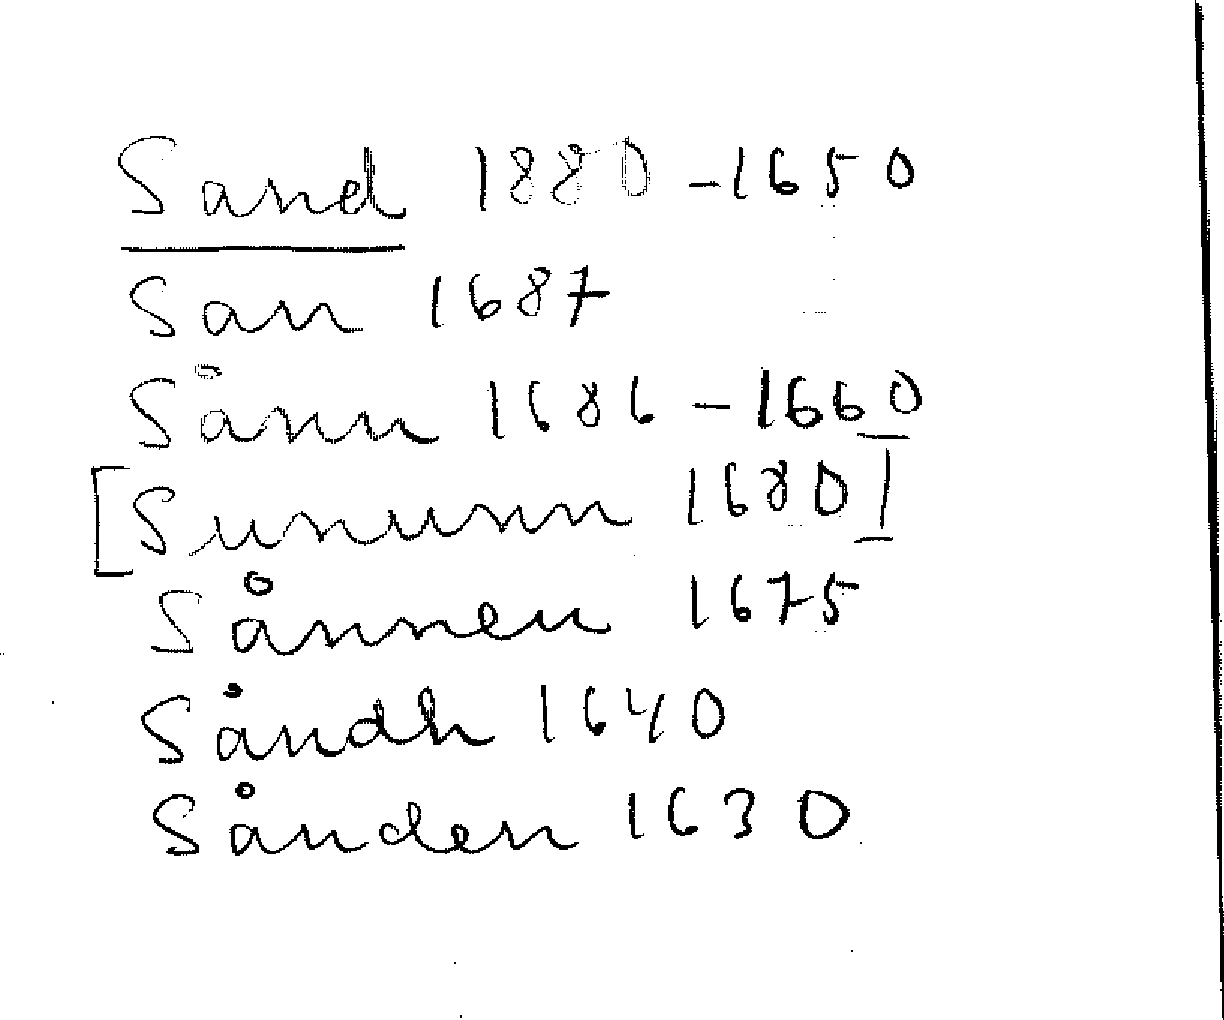 Sand 1880-1650
San 1687
Sånn 1686-1660
[Sunumn 1680]
Sånnen 1675
Såndh 1640
Sånden 1630